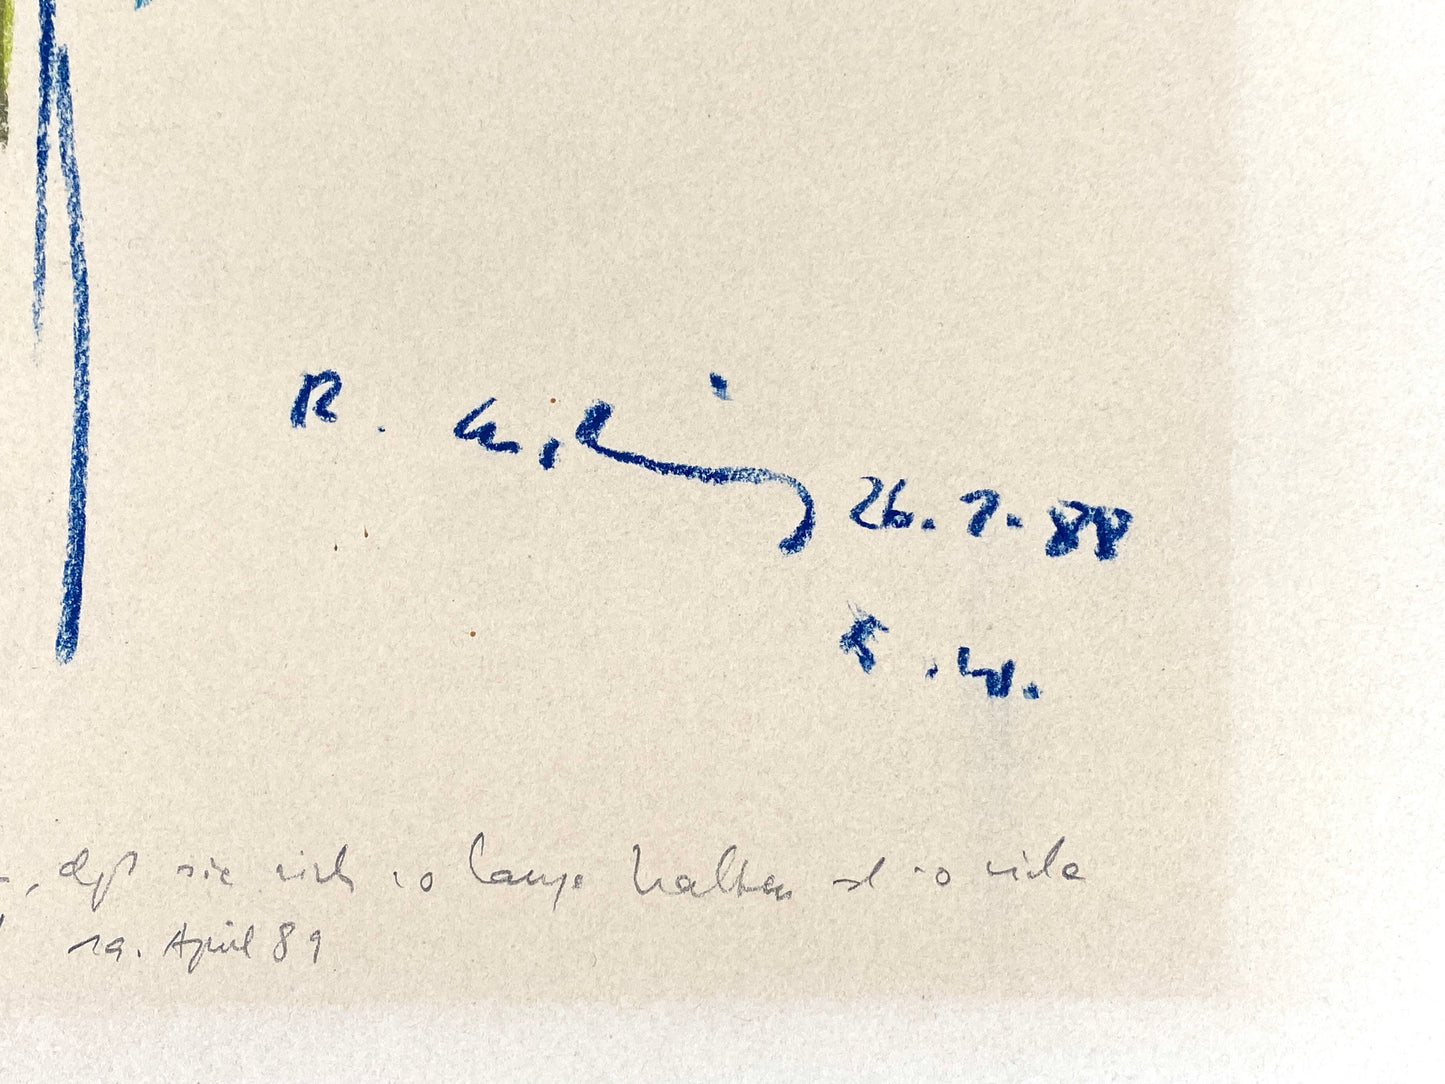 R. 26. 7. 88
E.W.
, daß sie sich so lange halten und so viele
19. April 89